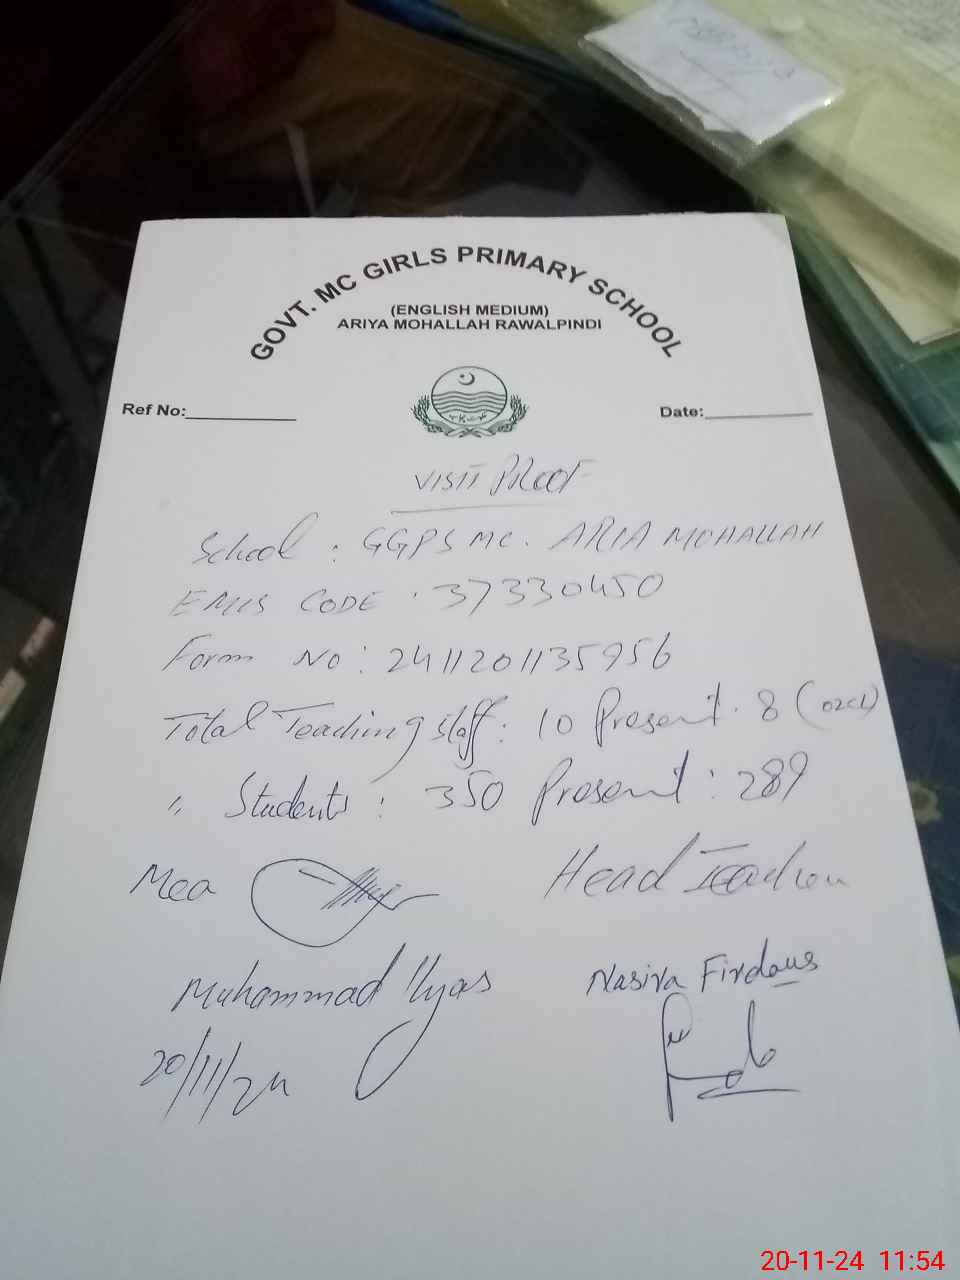 GOVT. MC GIRLS PRIMARY SCHOOL
(ENGLISH MEDIUM)
ARIYA MOHALLAH RAWALPINDI
Ref No:
Date:
VISIT PROOF
School : GGPS MC. ARIA MOHALLAH
EMIS CODE . 37330450
Form No : 2411201135956
Total Teaching staff : 10 Present . 8 (02CL)
" Students : 350 Present : 289
Mea
Head Teacher
Muhammad Ilyas
Nasira Firdous
20/11/24
20-11-24 11:54